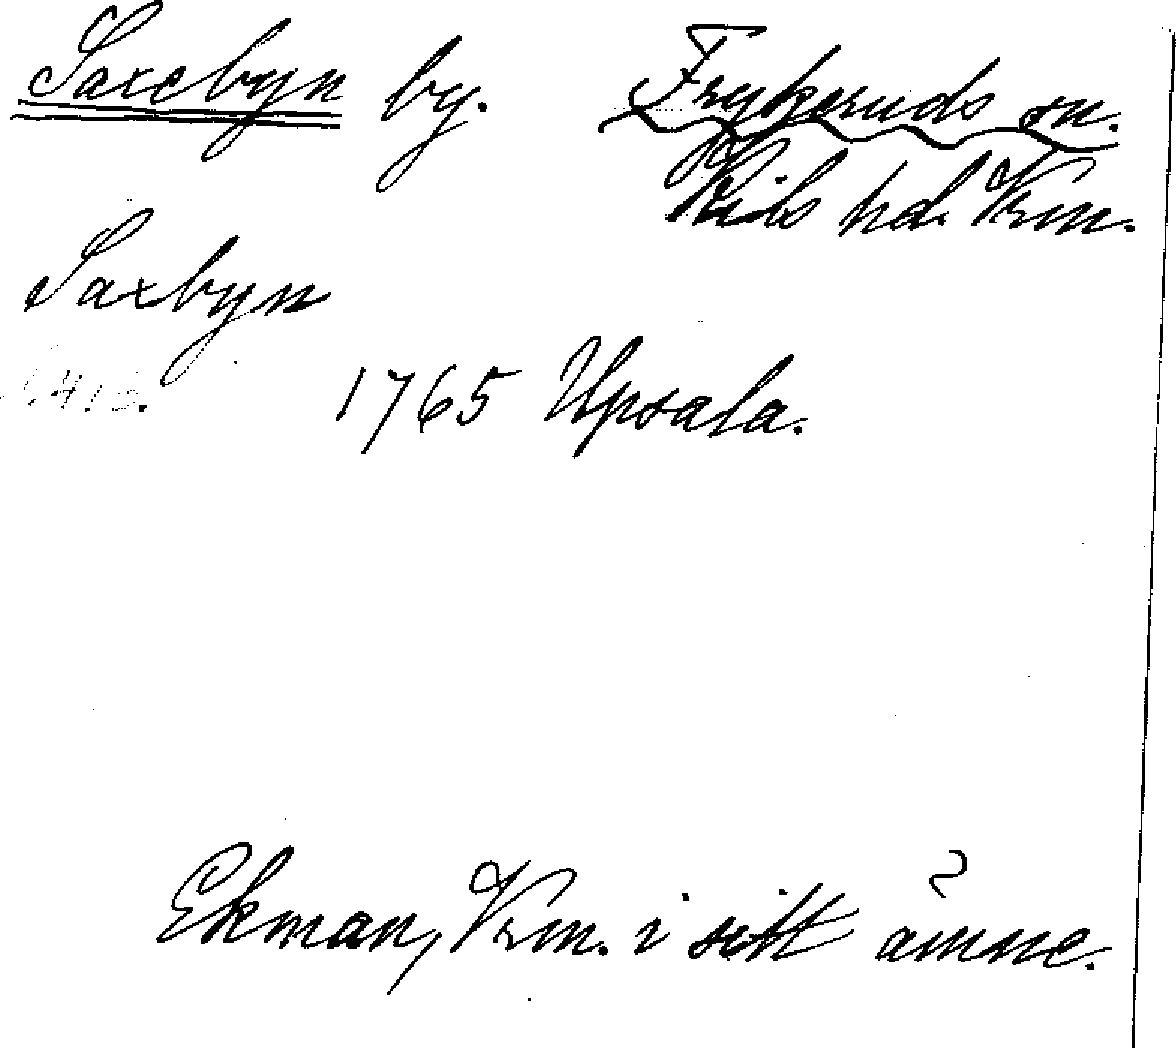 Saxebyn by. Frykeruds sn.
Kils hd. Vrm.
Saxbyn
1765 Upsala.
Ekman, Vrm. i sitt ämne.